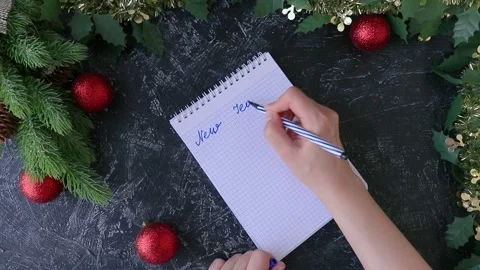 New Yea